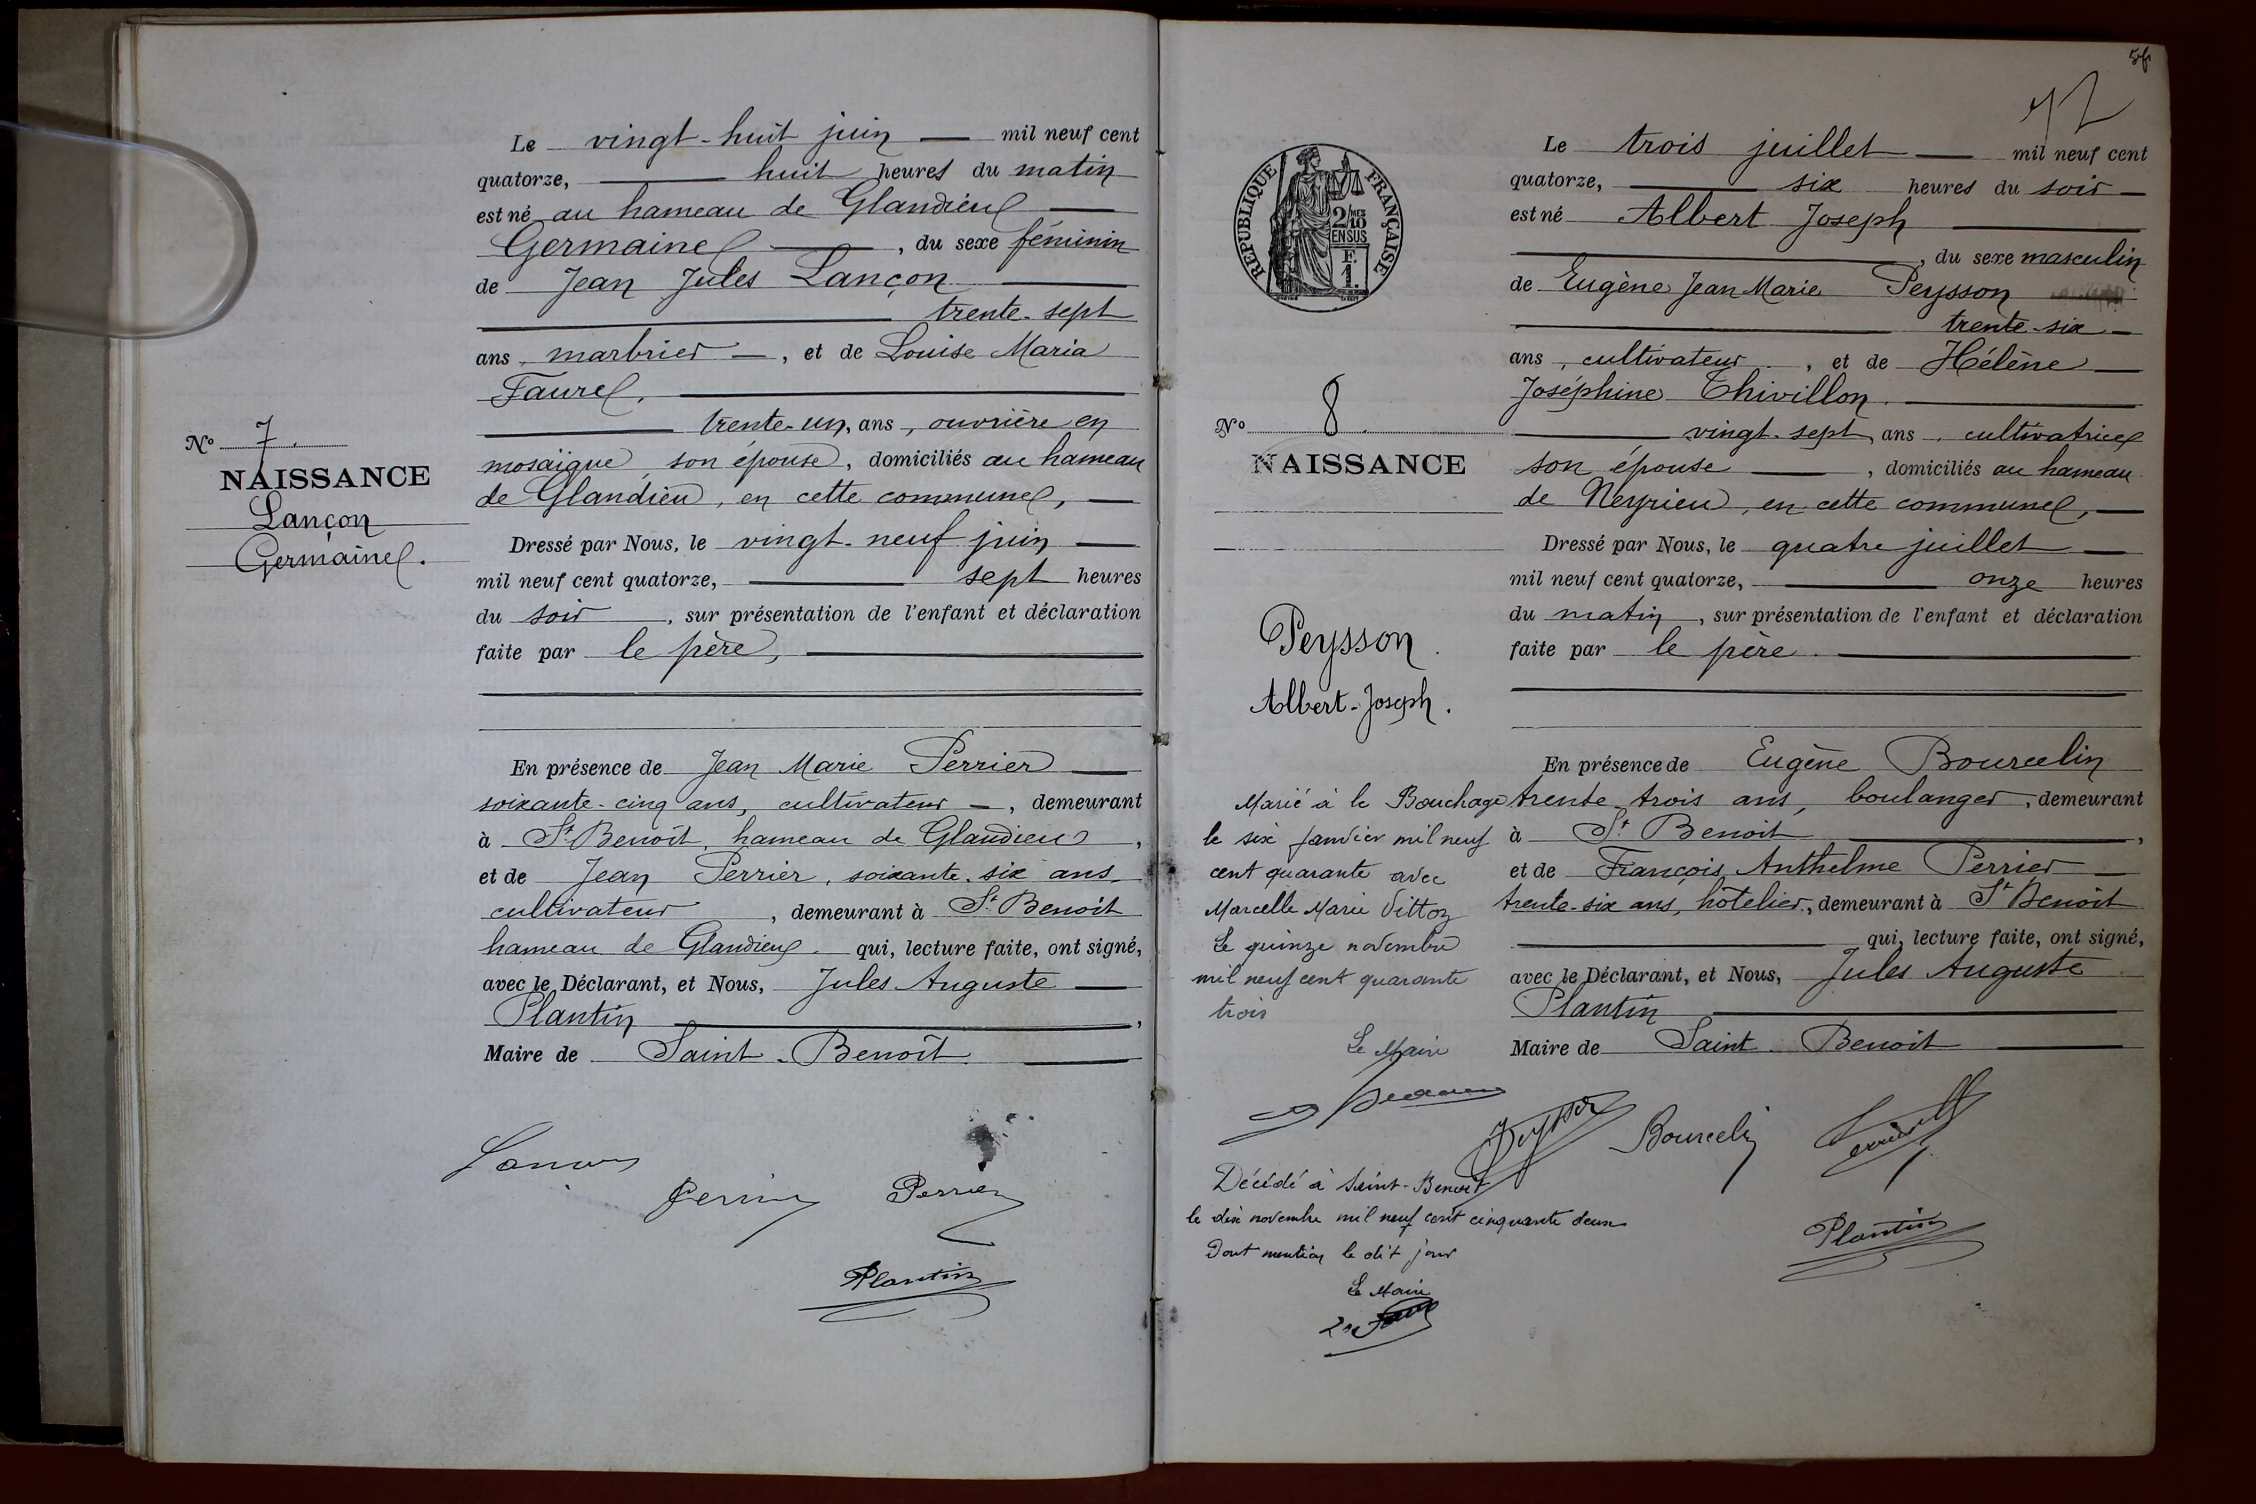 Le vingt-huit juin mil neuf cent
quatorze, huit heures du matin
est né au hameau de Glandieu
Germaine, du sexe féminin
de Jean Jules Lançon
trente-sept
ans, marbrier, et de Louise Maria
Faure,
trente-un, ans, ouvrière en
mosaïque, son épouse, domiciliés au hameau
de Glandieu, en cette commune,
Dressé par Nous, le vingt-neuf juin
mil neuf cent quatorze, sept heures
du soir, sur présentation de l'enfant et déclaration
faite par le père,
En présence de Jean Marie Perrier
soixante-cinq ans, cultivateur, demeurant
à St Benoit, hameau de Glandieu,
et de Jean Perrier, soixante-six ans,
cultivateur, demeurant à St Benoit
hameau de Glandieu. qui, lecture faite, ont signé,
avec le Déclarant, et Nous, Jules Auguste
Plantin,
Maire de Saint-Benoit
No 7.
NAISSANCE
Lançon
Germaine.
Perrier
Plantin
RÉPUBLIQUE FRANÇAISE
2/10MES
EN SUS
F.
1.
No 8.
NAISSANCE
Peysson.
Albert-Joseph.
Marié à le Bouchage
le six janvier mil neuf
cent quarante avec
Marcelle Marie Vittoz
Le quinze novembre
mil neuf cent quarante
trois
Le Maire
Décédé à Saint-Benoit
le dix novembre mil neuf cent cinquante deux
Dont mention le dit jour
Le Maire
Le trois juillet mil neuf cent
quatorze, six heures du soir
est né Albert Joseph
, du sexe masculin
de Eugène Jean Marie Peysson
trente-six
ans, cultivateur, et de Hélène
Joséphine Thivillon.
vingt-sept, ans, cultivatrice
son épouse, domiciliés au hameau
de Neyrieu, en cette commune,
Dressé par Nous, le quatre juillet
mil neuf cent quatorze, onze heures
du matin, sur présentation de l'enfant et déclaration
faite par le père.
En présence de Eugène Bourcelin
trente-trois ans, boulanger, demeurant
à St Benoit,
et de François Anthelme Perrier
trente-six ans, hôtelier, demeurant à St Benoit
qui, lecture faite, ont signé,
avec le Déclarant, et Nous, Jules Auguste
Plantin
Maire de Saint-Benoit
Peysson Bourcelin
Plantin